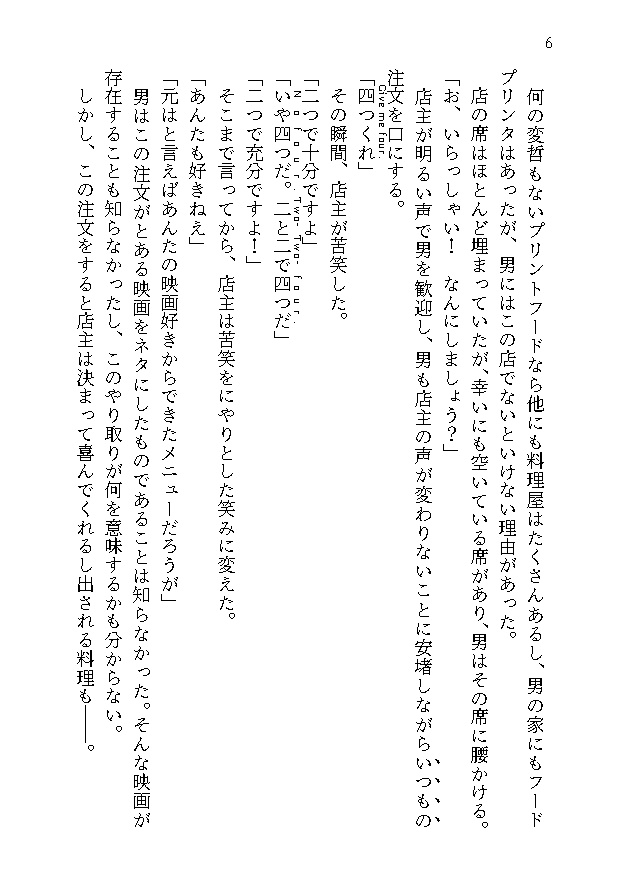 6
何の変哲もないプリントフードなら他にも料理屋はたくさんあるし、男の家にもフード
プリンタはあったが、男にはこの店でないといけない理由があった。
店の席はほとんど埋まっていたが、幸いにも空いている席があり、男はその席に腰かける。
「お、いらっしゃい！　なんにしましょう？」
店主が明るい声で男を歓迎し、男も店主の声が変わりないことに安堵しながらいつもの
注文を口にする。
Give me four.
「四つくれ」
その瞬間、店主が苦笑した。
「二つで十分ですよ」
No, four. Two, Two, four.
「いや四つだ。二と二で四つだ」
「二つで充分ですよ！」
そこまで言ってから、店主は苦笑をにやりとした笑みに変えた。
「あんたも好きねえ」
「元はと言えばあんたの映画好きからできたメニューだろうが」
男はこの注文がとある映画をネタにしたものであることは知らなかった。そんな映画が
存在することも知らなかったし、このやり取りが何を意味するかも分からない。
しかし、この注文をすると店主は決まって喜んでくれるし出される料理も――。